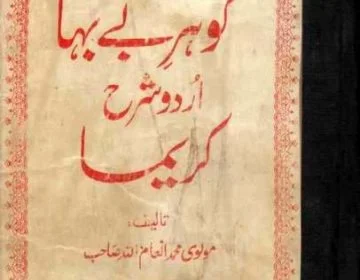 گوہرِ بے بہا
اردو شرح
کریما
تالیف:
مولوی محمد انعام اللہ صاحب